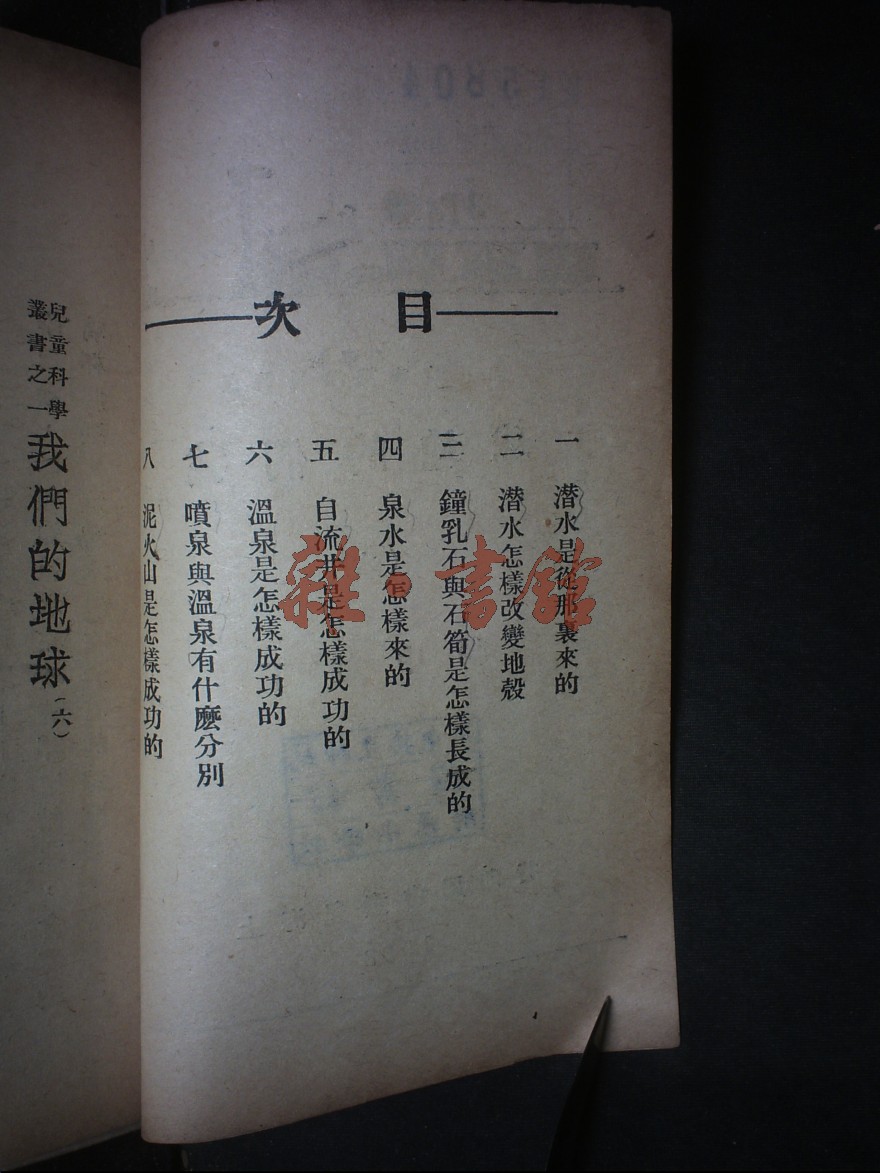 目次
一 潛水是從那裏來的
二 潛水怎樣改變地殼
三 鐘乳石與石筍是怎樣長成的
四 泉水是怎樣來的
五 自流井是怎樣成功的
六 溫泉是怎樣成功的
七 噴泉與溫泉有什麼分別
八 泥火山是怎樣成功的
兒童科學
叢書之一
我們的地球(六)
雜·書館